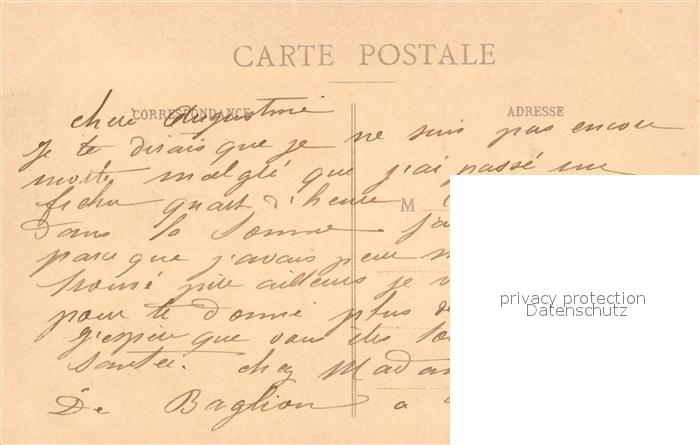 CARTE POSTALE
CORRESPONDANCE
ADRESSE
chere Augustine
Je te dirais que je ne suis pas encore
morte malglé que j'ai passé un
fichu quart d'heure
M
dans la Somme
parce que j'avais peur
trouvé pire ailleurs je
pour te donné plus de
J'espère que vous êtes
santée. chez Madam
De Baglion a
privacy protection
Datenschutz